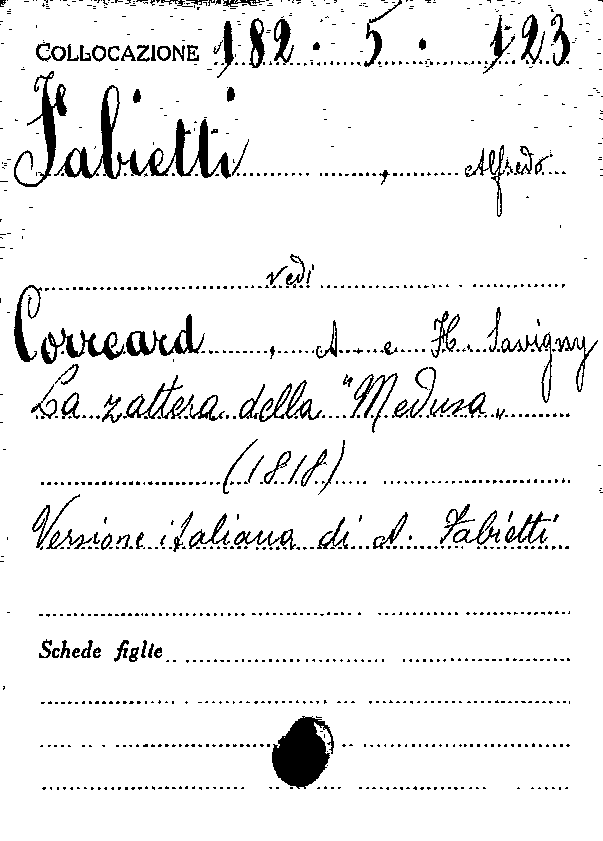 COLLOCAZIONE 182 . 5 . 123
Fabietti , Alfredo
vedi
Correard , A. e H. Savigny
La zattera della "Medusa„
(1818)
Versione italiana di A. Fabietti
Schede figlie